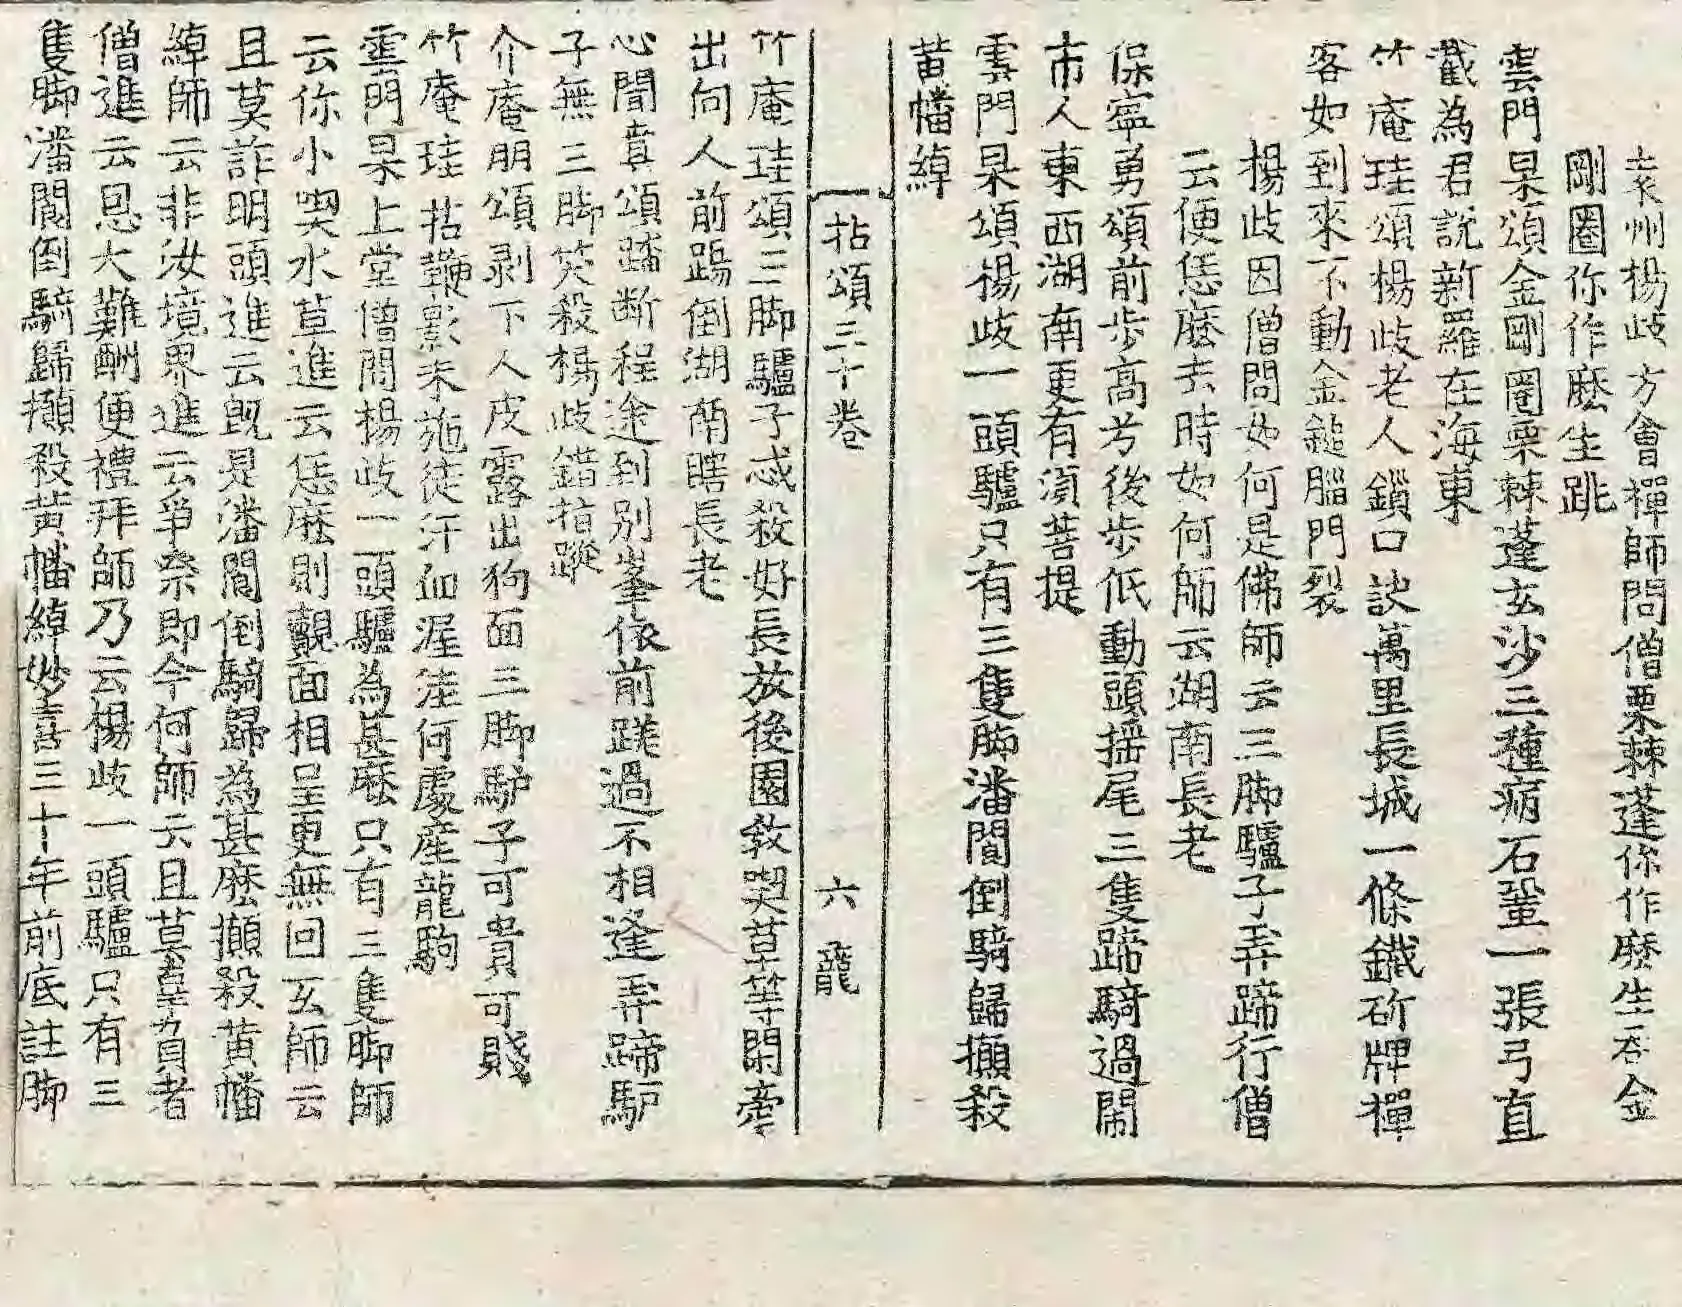 袁州楊歧方會禪師問僧栗棘蓬你作麽生吞金
剛圈你作麽生跳
雲門杲頌金剛圈栗棘蓬玄沙三種病石鞏一張弓直
截為君說新羅在海東
竹庵珪頌楊歧老人鎖口訣萬里長城一條鐵斫牌禪
客如到來不動金鎚腦門裂
楊歧因僧問如何是佛師云三脚驢子弄蹄行僧
云便恁麽去時如何師云湖南長老
保寧勇頌前步高兮後步低動頭揺尾三隻蹄騎過鬧
市人東西湖南更有須菩提
雲門杲頌楊歧一頭驢只有三隻脚潘閬倒騎歸攧殺
黄幡綽
拈頌三十卷 六 龍
竹庵珪頌三脚驢子忒殺好長放後園敎喫草等閑牽
出向人前踢倒湖南瞎長老
心聞賁頌踏断程途到别峯依前蹉過不相逢弄蹄馿
子無三脚笑殺楊歧錯指蹤
介庵朋頌剥下人皮露出狗面三脚馿子可貴可賤
竹庵珪拈鞭影未施徒汗血渥洼何處産龍駒
雲門杲上堂僧問楊歧一頭驢為甚麽只有三隻脚師
云你小喫水草進云恁麽則覿面相呈更無回互師云
且莫詐明頭進云旣是潘閬倒騎歸為甚麽攧殺黄幡
綽師云非汝境界進云爭柰即今何師云且莫辜負者
僧進云恩大難酬便禮拜師乃云楊歧一頭驢只有三
隻脚潘閬倒騎歸攧殺黄幡綽妙喜三十年前底註脚